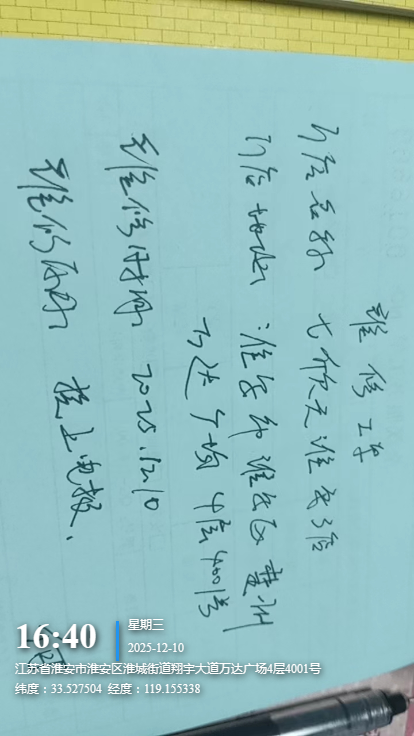 维修工单
门店名称 七欣天淮安3店
门店地址:淮安市淮安区楚州
万达广场4层4001号
维修时间 2025.12.10
维修内容
16:40
星期三
2025-12-10
江苏省淮安市淮安区淮城街道翔宇大道万达广场4层4001号
纬度：33.527504 经度：119.155338